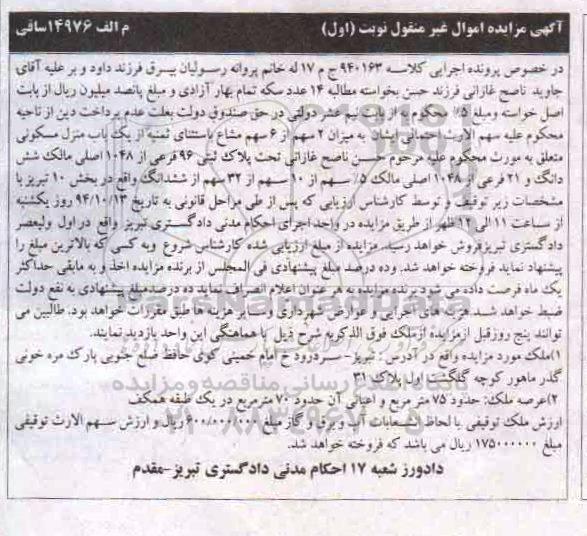 آگهی مزایده اموال غیر منقول نوبت (اول) م الف ۱۴۹۷۶ساقی
در خصوص پرونده اجرایی کلاسه ۹۴۰۱۶۳ ج م ۱۷ له خانم پروانه رسولیان بیرق فرزند داود و بر علیه آقای
جاوید ناصح غازانی فرزند حسن بخواسته مطالبه ۱۴ عدد سکه تمام بهار آزادی و مبلغ پانصد میلیون ریال از بابت
اصل خواسته ومبلغ ۵٪ محکوم به از بابت نیم عشر دولتی در حق صندوق دولت بعلت عدم پرداخت دین از ناحیه
محکوم علیه سهم الارث احتمالی ایشان به میزان ۲ سهم از ۶ سهم مشاع باستثنای ثمنیه از یک باب منزل مسکونی
متعلق به مورث محکوم علیه مرحوم حسن ناصح غازانی تحت پلاک ثبتی ۹۶ فرعی از ۱۰۴۸ اصلی مالک شش
دانگ و ۲۱ فرعی از ۱۰۴۸ اصلی مالک ۵٪ سهم از ۱۰ سهم از ۳۲ سهم از ششدانگ واقع در بخش ۱۰ تبریز با
مشخصات زیر توقیف و توسط کارشناس ارزیابی که پس از طی مراحل قانونی به تاریخ ۹۴/۱۰/۱۳ روز یکشنبه
از ساعت ۱۱ الی ۱۲ ظهر از طریق مزایده در واحد اجرای احکام مدنی دادگستری تبریز واقع در اول ولیعصر
دادگستری تبریزفروش خواهد رسید. مزایده از مبلغ ارزیابی شده کارشناس شروع وبه کسی که بالاترین مبلغ را
پیشنهاد نماید فروخته خواهد شد. وده درصد مبلغ پیشنهادی فی المجلس از برنده مزایده اخذ و به مابقی حداکثر
یک ماه فرصت داده می شود برنده مزایده به هر عنوان اعلام انصراف نماید ده درصد مبلغ پیشنهادی به نفع دولت
ضبط خواهد شد هزینه های اجرایی و عوارض شهرداری وسایر هزینه ها طبق مقررات خواهد بود. طالبین می
توانند پنج روزقبل ازمزایده ازملک فوق الذکربه شرح ذیل با هماهنگی این واحد بازدید نمایند.
۱)ملک مورد مزایده واقع در آدرس : تبریز- سردرود خ امام خمینی کوی حافظ ضلع جنوبی پارک مره خونی
گذر ماهور کوچه گلگشت اول پلاک ۳۱
۲)عرصه ملک: حدود ۷۵ متر مربع و اعیانی آن حدود ۷۰ مترمربع در یک طبقه همکف
ارزش ملک توقیفی با لحاظ انشعابات آب و برق و گاز مبلغ ۶۰۰/۰۰۰/۰۰۰ ریال و ارزش سهم الارث توقیفی
مبلغ ۱۷۵۰۰۰۰۰۰ ریال می باشد که فروخته خواهد شد.
دادورز شعبه ۱۷ احکام مدنی دادگستری تبریز-مقدم
ParsNamadData